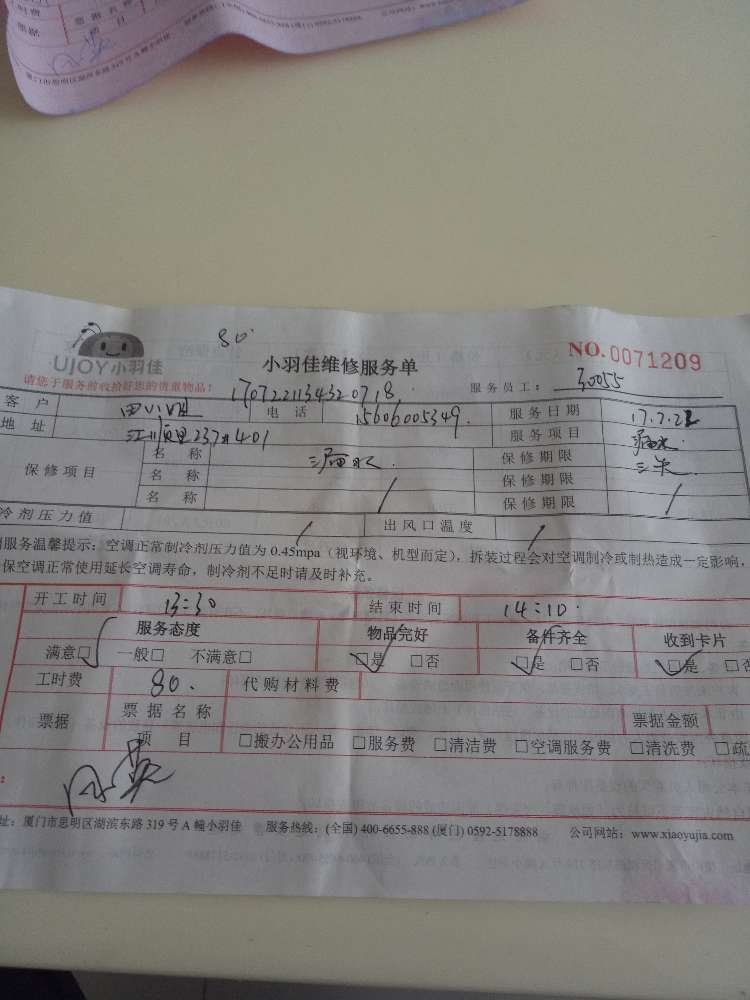 80.
UJOY小羽佳
小羽佳维修服务单
NO.0071209
请您于服务前收拾好您的贵重物品!
1707221134320718
服务员工: 30055
客户
电话 15606005349.
服务日期 17.7.22
地址 237#401
服务项目 漏水
保修项目 名称 漏水. 保修期限 三天
名称 / 保修期限 /
名称 保修期限
冷剂压力值 / 出风口温度 /
服务温馨提示:空调正常制冷剂压力值为 0.45mpa(视环境、机型而定),拆装过程会对空调制冷或制热造成一定影响,
保空调正常使用延长空调寿命,制冷剂不足时请及时补充。
开工时间 13:30 结束时间 14:10.
服务态度 物品完好 备件齐全 收到卡片
满意□ 一般□ 不满意□ □是 □否 □是 □否 □是 □否
工时费 80. 代购材料费
票据 票据名称 票据金额
项目 □搬办公用品 □服务费 □清洁费 □空调服务费 □清洗费 □疏
址:厦门市思明区湖滨东路 319 号 A 幢小羽佳 服务热线:(全国) 400-6655-888 (厦门) 0592-5178888 公司网站:www.xiaoyujia.com